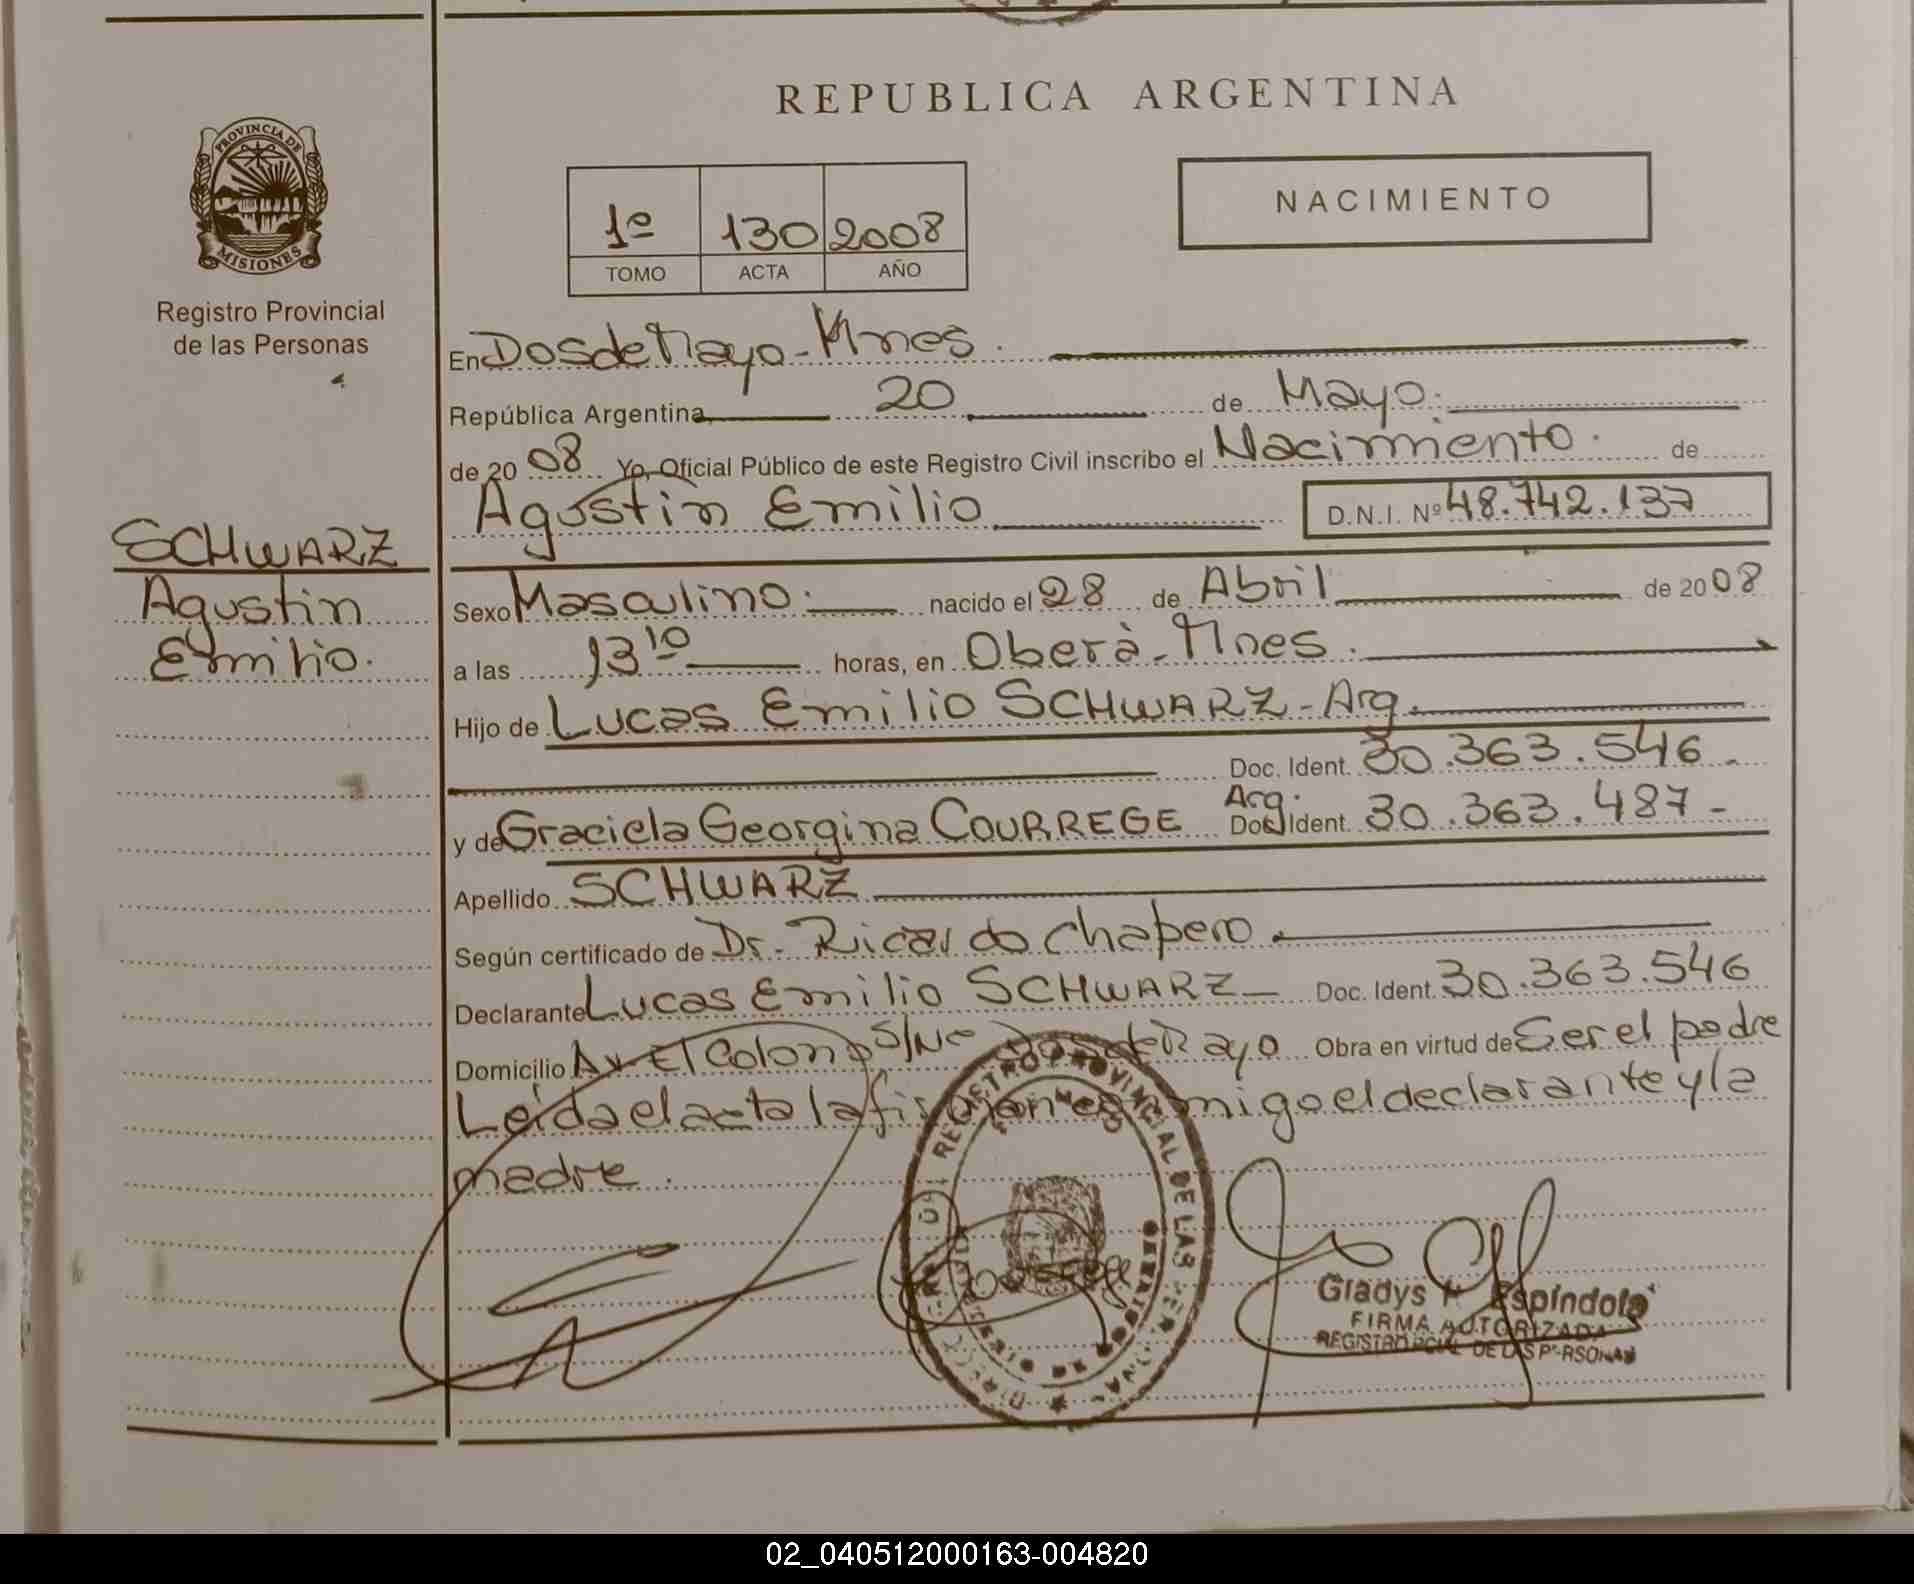 REPUBLICA ARGENTINA
PROVINCIA DE
MISIONES
Registro Provincial
de las Personas
NACIMIENTO
1º 130 2008
TOMO ACTA AÑO
En Dos de Mayo - Mnes.
República Argentina 20 de Mayo.
de 20 08 Yo, Oficial Público de este Registro Civil inscribo el Nacimiento. de
Agustin Emilio D.N.I. Nº 48.742.137
SCHWARZ
Agustin
Emilio.
Sexo Masculino. nacido el 28 de Abril de 20 08
a las 13 10 horas, en Oberà - Mnes.
Hijo de Lucas Emilio SCHWARZ - Arg.
Doc. Ident. 30.363.546 -
Arg.
y de Graciela Georgina COURREGE Doc. Ident. 30.363.487 -
Apellido SCHWARZ
Según certificado de Dr. Ricardo Chapero.
Declarante Lucas Emilio SCHWARZ - Doc. Ident. 30.363.546
Domicilio Av El Colono S/Nº Dos de Mayo Obra en virtud de Ser el padre
Leída el acta la firman conmigo el declarante y la
madre.
REGISTRO PROVINCIAL DE LAS PERSONAS
Gladys H. Espíndola
FIRMA AUTORIZADA
REGISTRO PCIAL DE LAS PERSONAS
02_040512000163-004820